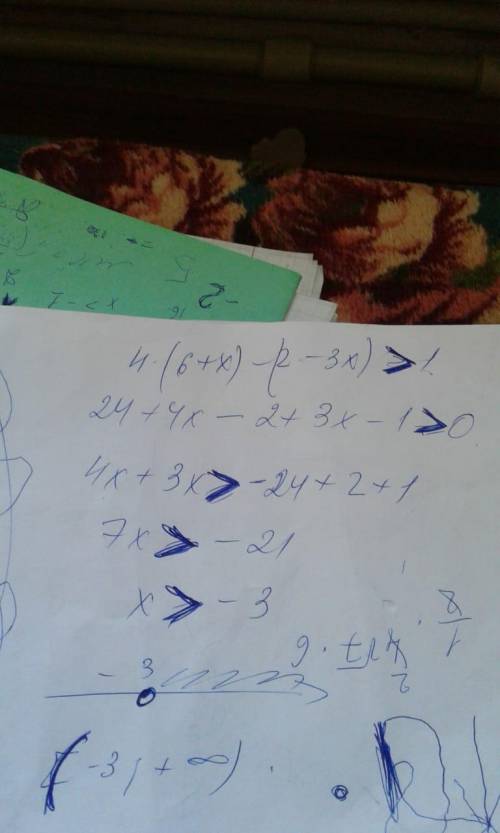 4·(6+x)-(2-3x)>1
24+4x-2+3x-1>0
4x+3x>-24+2+1
7x>-21
x>-3
-3
(-3;+∞)